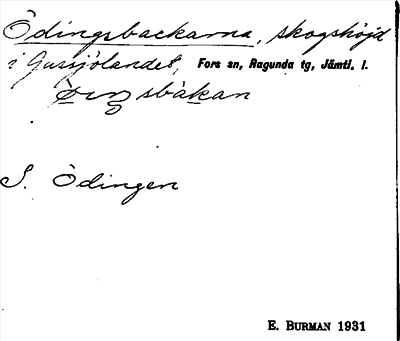 Ödingsbackarna, skogshöjd
i Gussjölandet, Fors sn, Ragunda tg, Jämtl. l.
S. Ödingen
E. BURMAN 1931